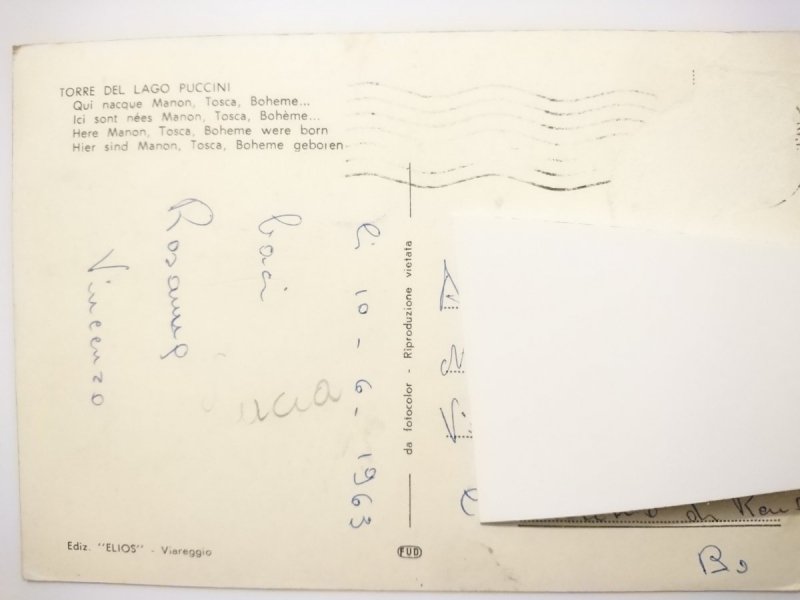 TORRE DEL LAGO PUCCINI
Qui nacque Manon, Tosca, Boheme...
Ici sont nées Manon, Tosca, Bohème...
Here Manon, Tosca, Boheme were born
Hier sind Manon, Tosca, Boheme geboren
li 10-6-1963
baci
Rosanna
Vincenzo
da fotocolor - Riproduzione vietata
di Ren
Bo
Ediz. "ELIOS" - Viareggio
FUD